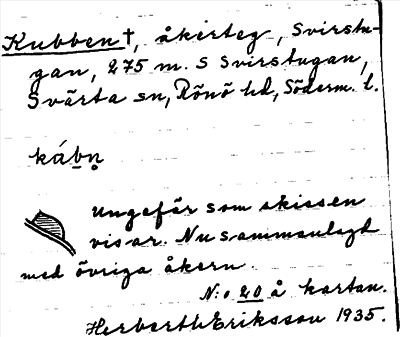 Kubben †, åkerteg, Svirstu-
gan, 275 m. S Svirstugan,
Svärta sn, Rönö hd, Söderm. l.
kábn̥
Ungefär som skissen
visar. Nu sammanlagd
med övriga åkern.
N:o 20 å kartan.
Herbert Eriksson 1935.